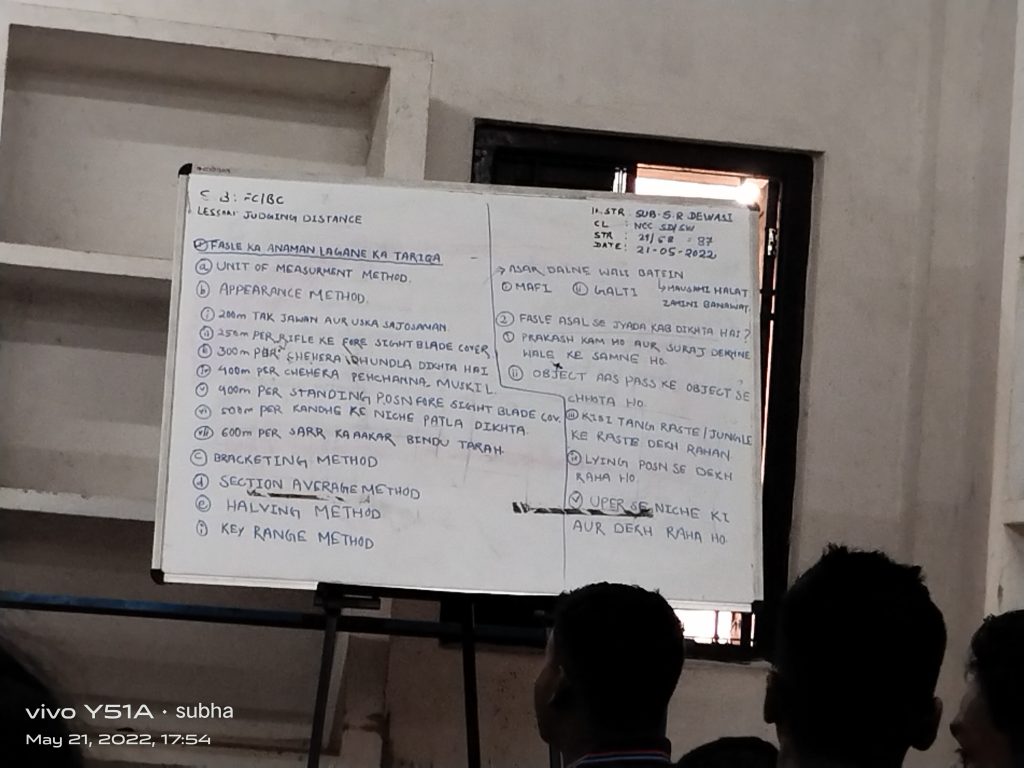 LESSON: JUDGING DISTANCE
FASLE KA ANAMAN LAGANE KA TARIQA
ⓐ UNIT OF MEASURMENT METHOD.
ⓑ APPEARANCE METHOD.
ⓘ 200m TAK JAWAN AUR USKA SAJOSAMAN.
ⓘⓘ 250m PER RIFLE KE FORE SIGHT BLADE COVER
300m PER CHEHERA DHUNDLA DIKHTA HAI
ⓘⓥ 400m PER CHEHERA PEHCHANNA MUSKIL.
ⓥ 400m PER STANDING POSN FORE SIGHT BLADE COV.
ⓥⓘ 500m PER KANDHE KE NICHE PATLA DIKHTA.
ⓥⓘⓘ 600m PER SARR KA AAKAR BINDU TARAH.
ⓒ BRACKETING METHOD
ⓓ SECTION AVERAGE METHOD
ⓔ HALVING METHOD
KEY RANGE METHOD
STR : SUB. S.R DEWASI
CL : NCC SD/SW
STR : 87
DATE : 21-05-2022
→ ASAR DALNE WALI BATEIN
ⓘ MAFI ⓘⓘ GALTI ↳ MAUSAMI HALAT
ZAMINI BANAWAT.
② FASLE ASAL SE JYADA KAB DIKHTA HAI?
ⓘ PRAKASH KAM HO AUR SURAJ DEKHNE
WALE KE SAMNE HO.
ⓘⓘ OBJECT AAS PASS KE OBJECT SE
CHHOTA HO.
ⓘⓘⓘ KISI TANG RASTE/JUNGLE
KE RASTE DEKH RAHAN
ⓘⓥ LYING POSN SE DEKH
RAHA HO.
ⓥ UPER SE NICHE KI
AUR DEKH RAHA HO.
vivo Y51A · subha
May 21, 2022, 17:54